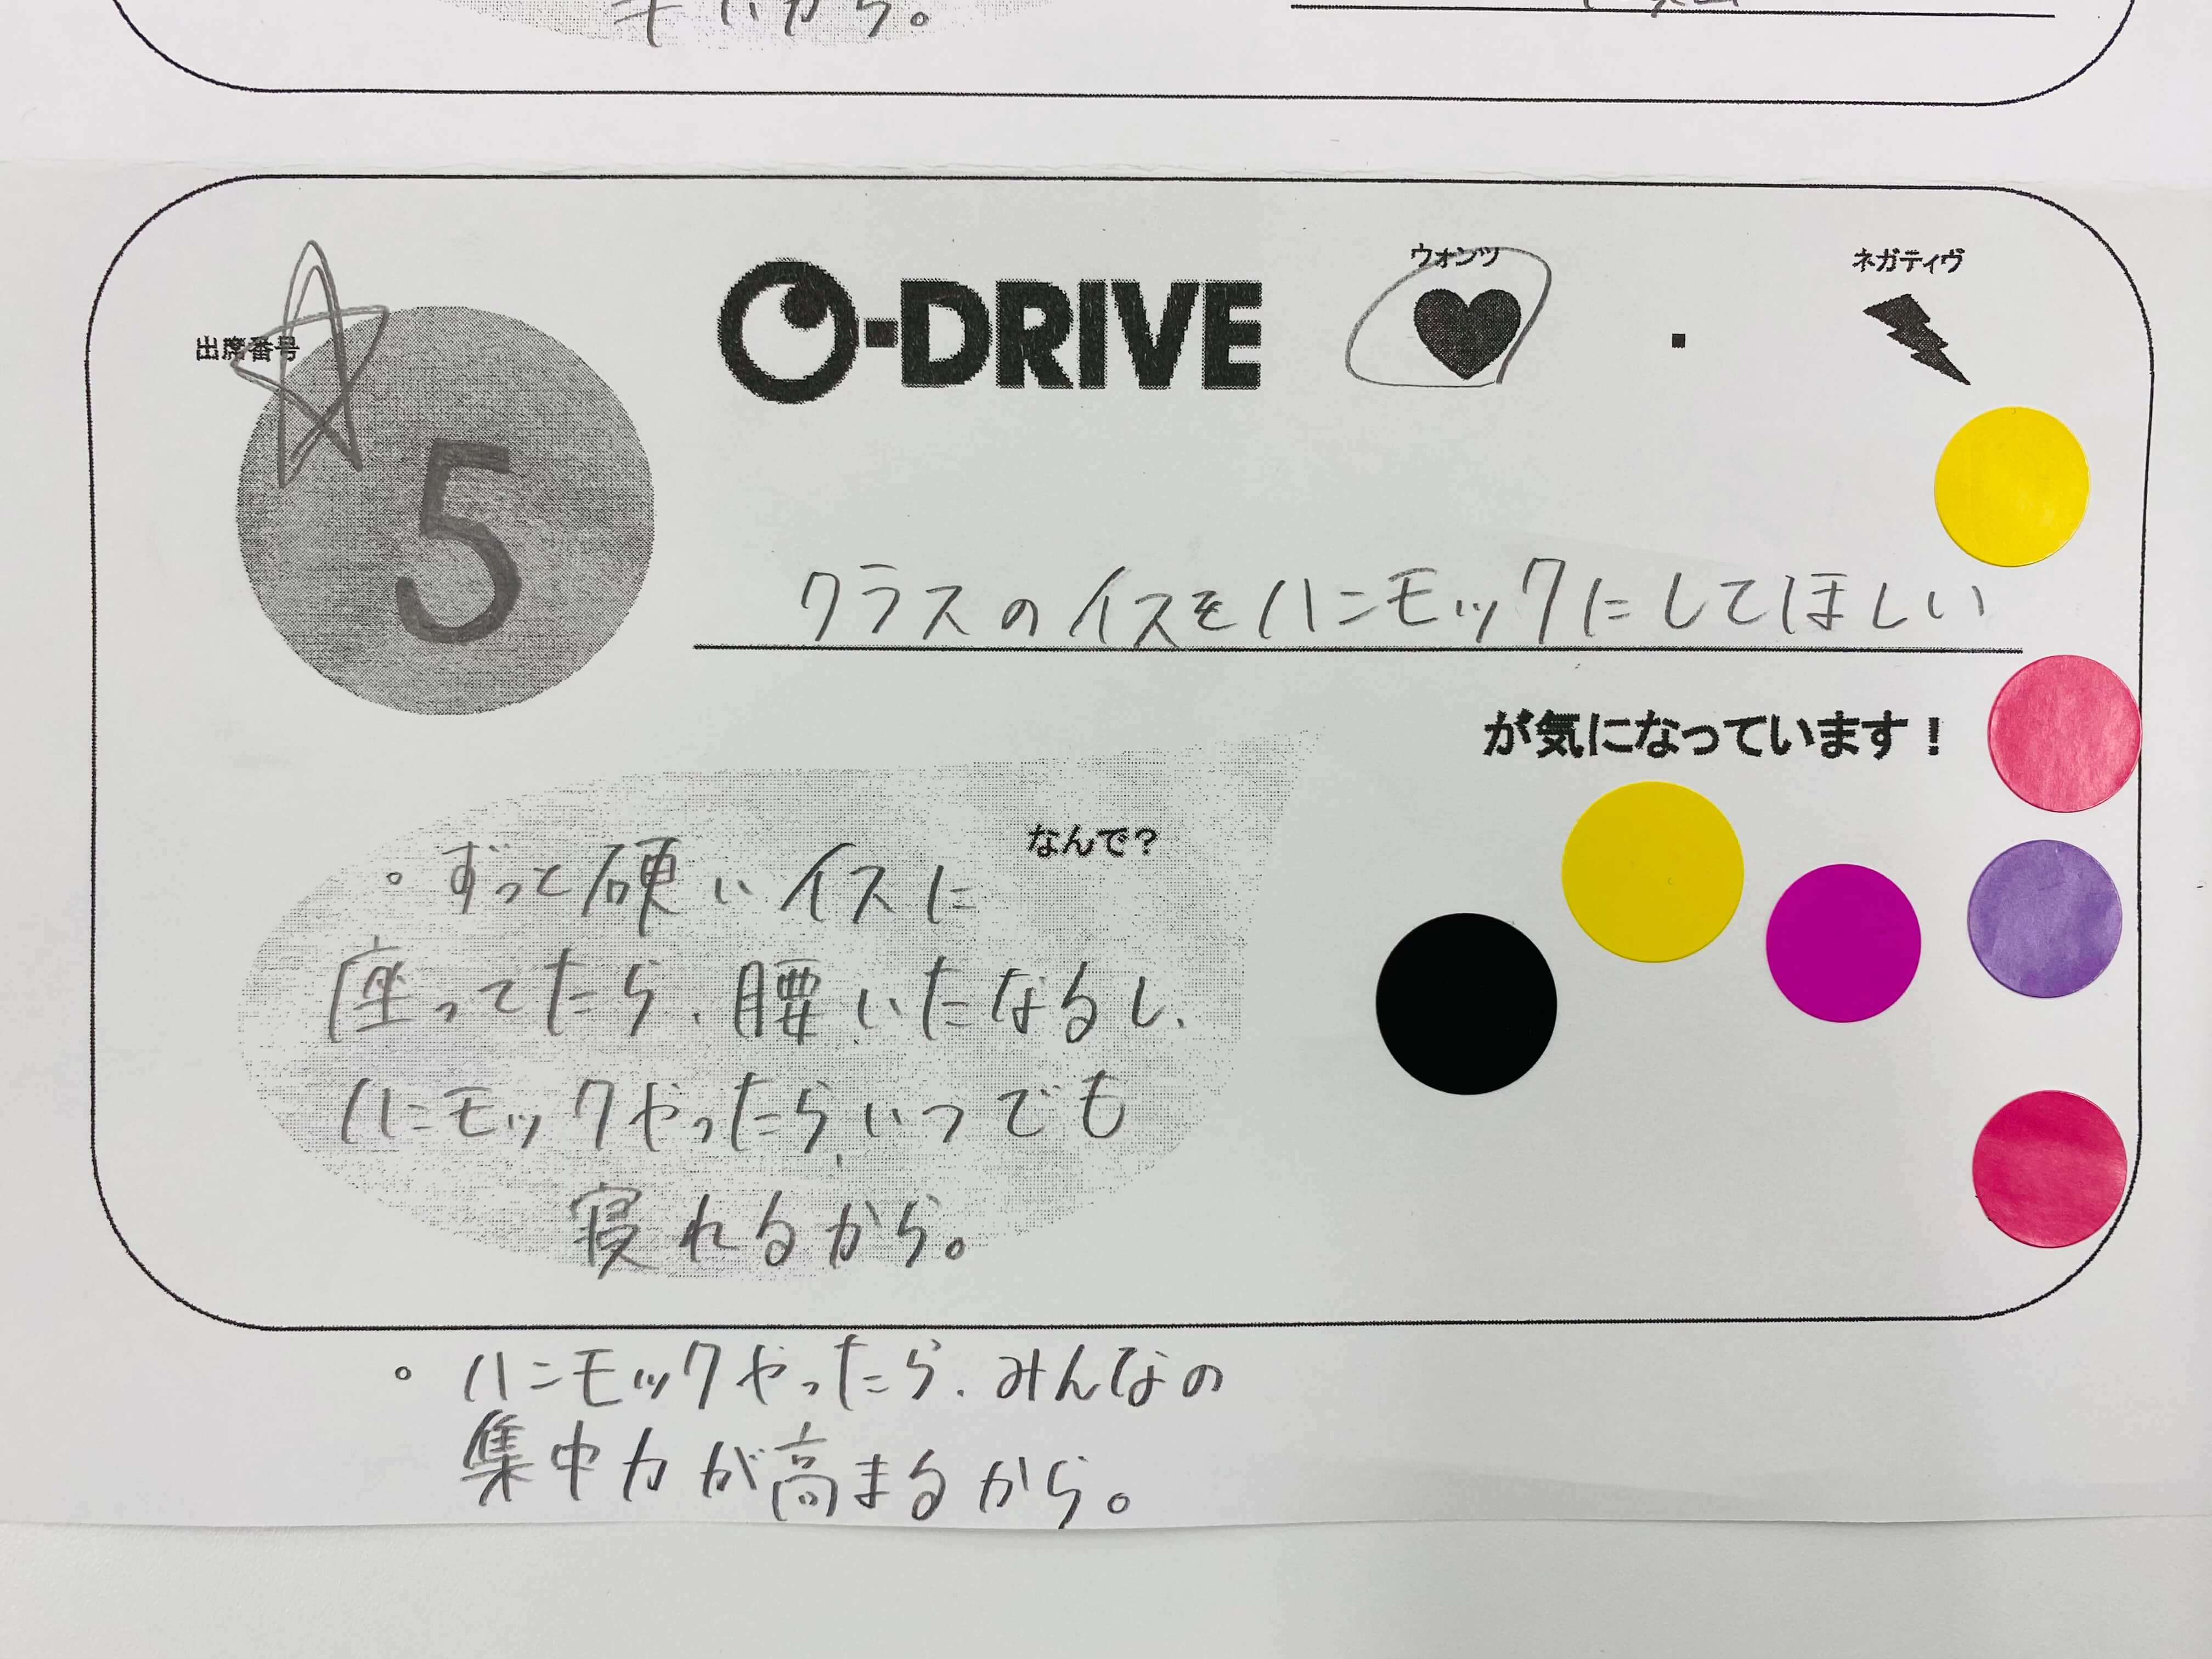 から。
ウォンツ
ネガティヴ
出席番号
O-DRIVE
5
クラスのイスをハンモックにしてほしい
が気になっています！
なんで？
。ずっと硬いイスに
座ってたら、腰いたなるし、
ハンモックやったら、いつでも
寝れるから。
。ハンモックやったら、みんなの
集中力が高まるから。